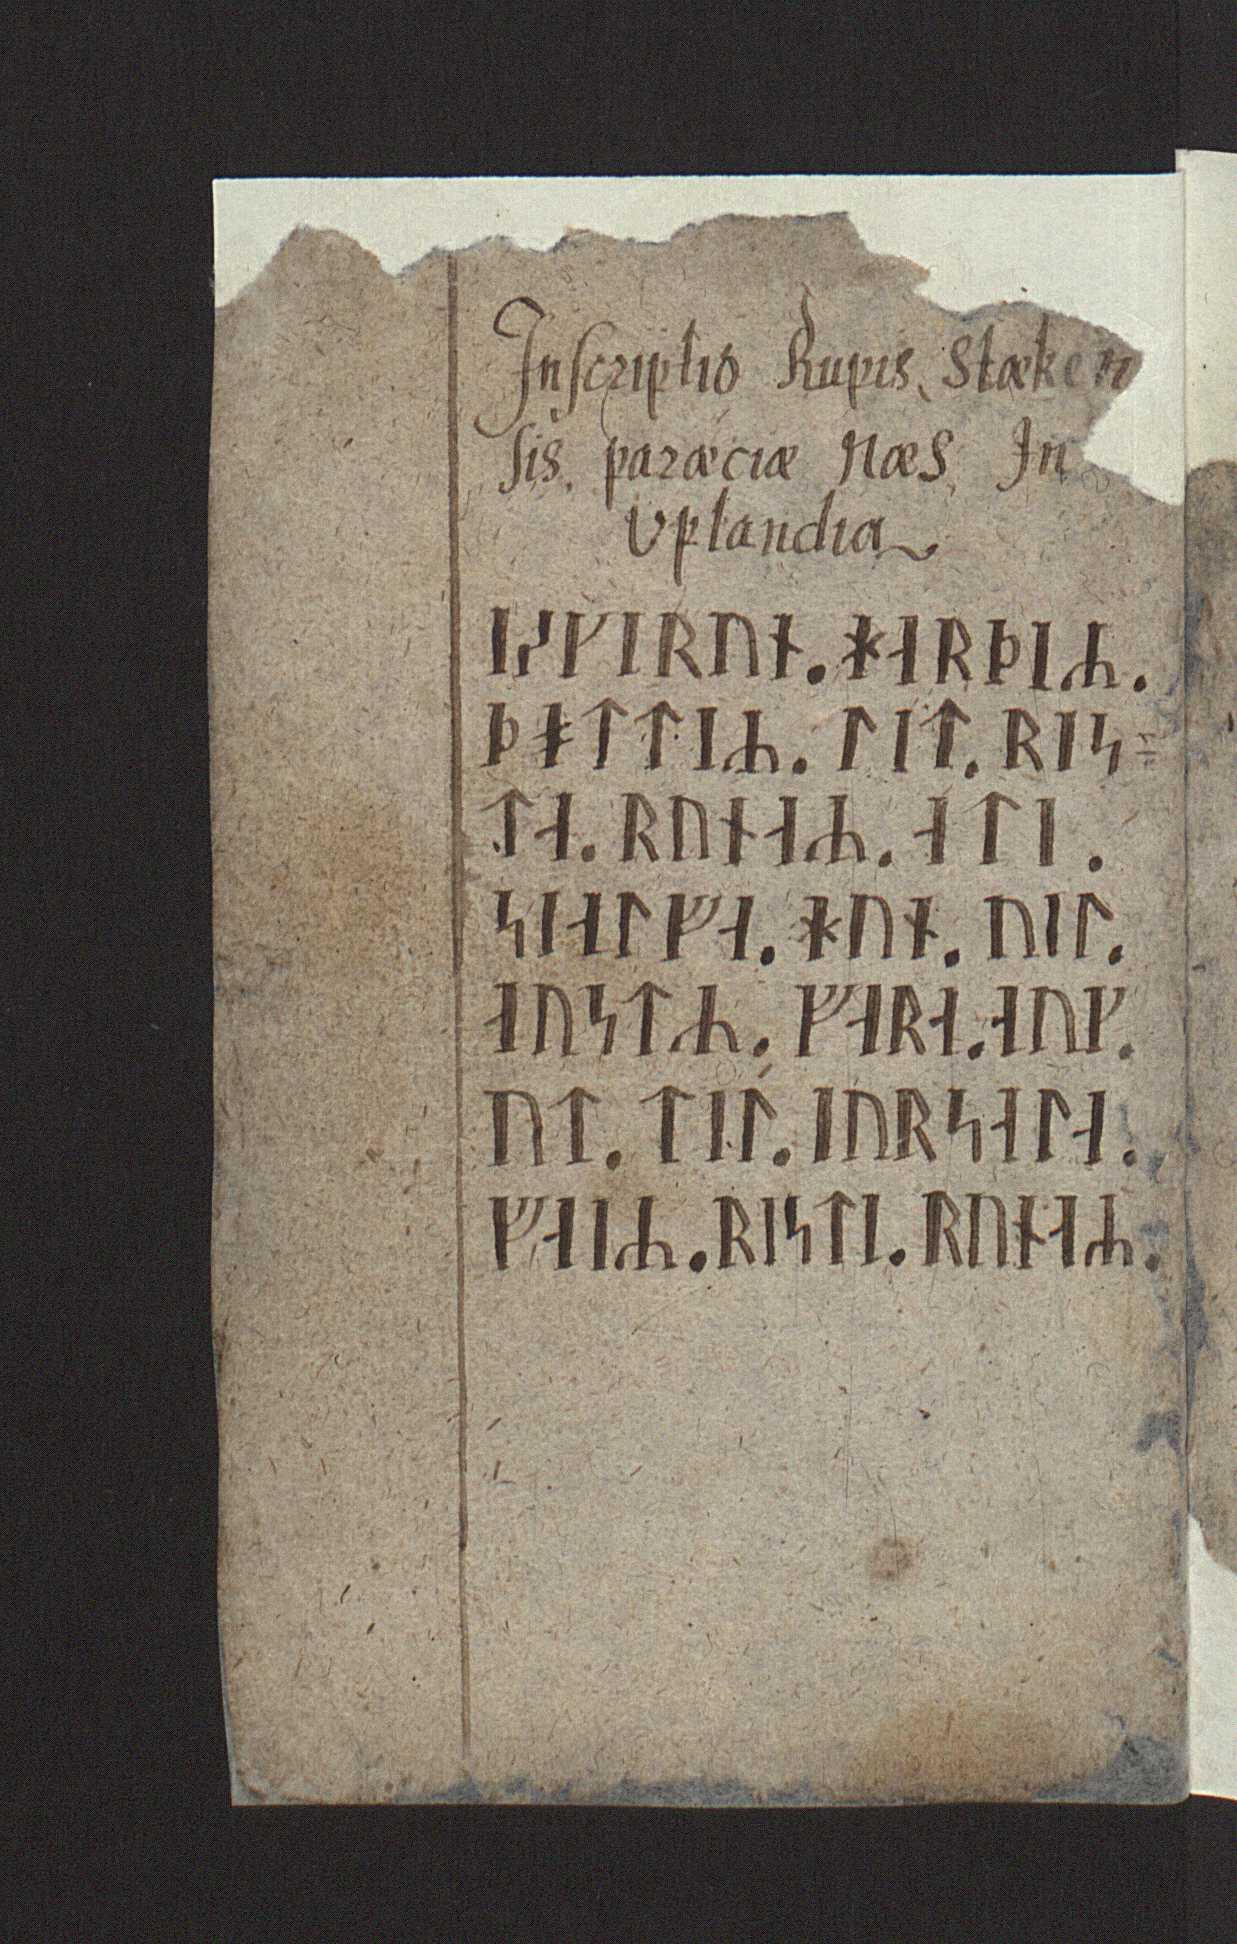 Inſcriptio Rupis, Stæken
ſis, paræciæ Næs, In
Uplandia
ᛁᛋᚴᛁᚱᚢᚾ. ᚼᛆᚱᚦᛁᛦ.
ᚦᚬᛏᛏᛁᛦ. ᛚᛁᛏ. ᚱᛁᛋ=
ᛏᛆ. ᚱᚢᚾᛆᛦ. ᛆᛏᛁ.
ᛋᛁᛆᛚᚠᛆ. ᚼᚢᚾ. ᚢᛁᛚ.
ᛆᚢᛋᛏᛦ. ᚠᛆᚱᛆ. ᛆᚢᚴ.
ᚢᛏ. ᛏᛁᛚ. ᛁᚢᚱᛋᛆᛚᛆ.
ᚠᛆᛁᛦ. ᚱᛁᛋᛏᛁ. ᚱᚢᚾᛆᛦ.